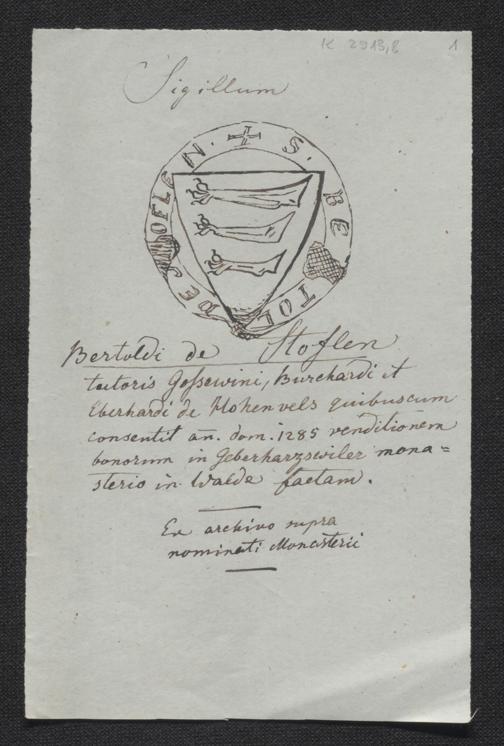 K 2913,8 1
Sigillum
+ S. BE TOL DE S OFLEN.
Bertoldi de Stoflen
tutoris Gossewini, Burchardi et
Eberhardi de Hohenvels quibuscum
consentit añ. dom. 1285 venditionem
bonorum in Geberharzswiler mona=
sterio in Walde factam.
Ex archivo supra
nominati Monasterii